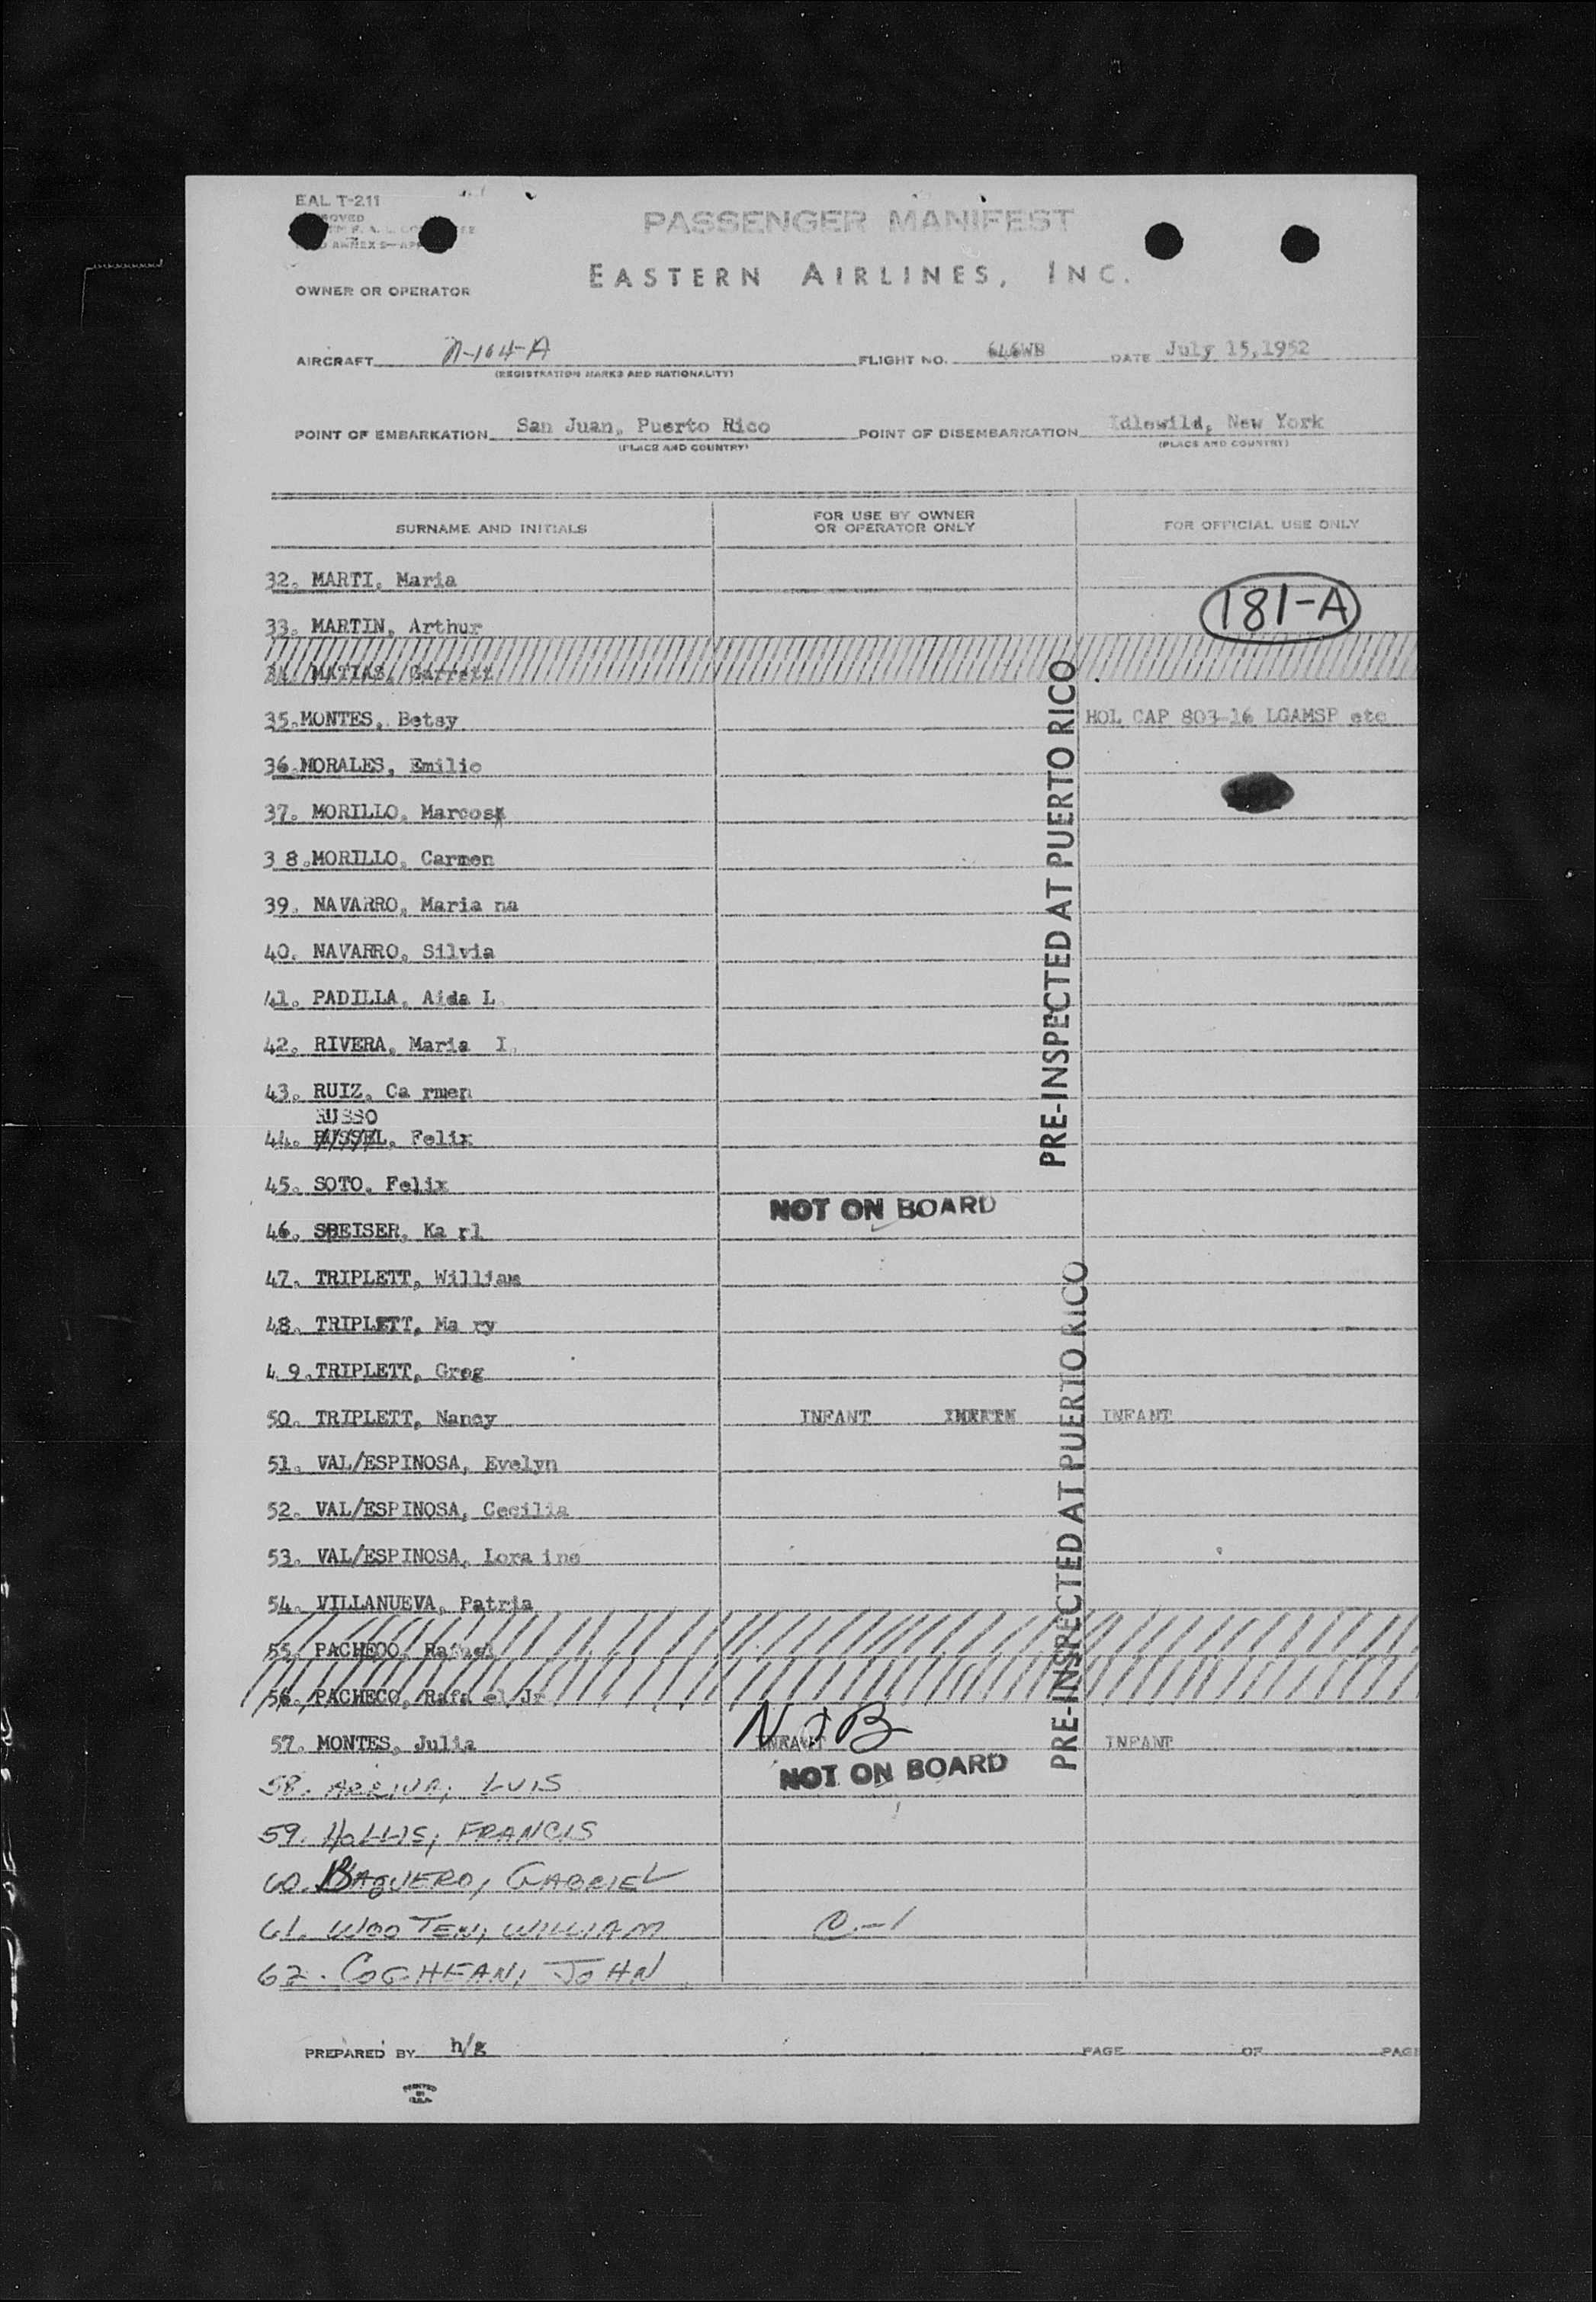 EAL T-211
PASSENGER MANIFEST
EASTERN AIRLINES, INC.
OWNER OR OPERATOR
AIRCRAFT N-104-A FLIGHT NO. 646WB DATE July 15,1952
(REGISTRATION MARKS AND NATIONALITY)
POINT OF EMBARKATION San Juan, Puerto Rico POINT OF DISEMBARKATION Idlewild, New York
(PLACE AND COUNTRY) (PLACE AND COUNTRY)
SURNAME AND INITIALS FOR USE BY OWNER OR OPERATOR ONLY FOR OFFICIAL USE ONLY
32. MARTI, Maria
181-A
33. MARTIN, Arthur
34. MATIAS, Garrett
35.MONTES, Betsy HOL CAP 803-16 LGAMSP etc
36.MORALES, Emilio
37. MORILLO, Marcos
38.MORILLO, Carmen
39. NAVARRO, Maria na
40. NAVARRO, Silvia
41. PADILLA, Aida L.
42. RIVERA, Maria I.
43. RUIZ, Ca rmen
RUSSO
44. RUSSEL, Felix
PRE-INSPECTED AT PUERTO RICO
45. SOTO, Felix
NOT ON BOARD
46. SPEISER, Ka rl
47. TRIPLETT, William
48. TRIPLETT, Ma ry
49.TRIPLETT, Greg
50. TRIPLETT, Nancy INFANT INFANT
51. VAL/ESPINOSA, Evelyn
52. VAL/ESPINOSA, Cecilia
53. VAL/ESPINOSA, Lora ine
54. VILLANUEVA, Patria
55. PACHECO, Rafael
56. PACHECO, Rafa el Jr
PRE-INSPECTED AT PUERTO RICO
57. MONTES, Julia INFANT NOB INFANT
NOT ON BOARD
58. LUIS
59. HOLLIS, FRANCIS
60. BAQUERO, GABRIEL
61. WOOTEN, WILLIAM C-1
62. COGHEAN, JOHN
PREPARED BY h/g PAGE OF PAGE
PRINTED IN U.S.A.